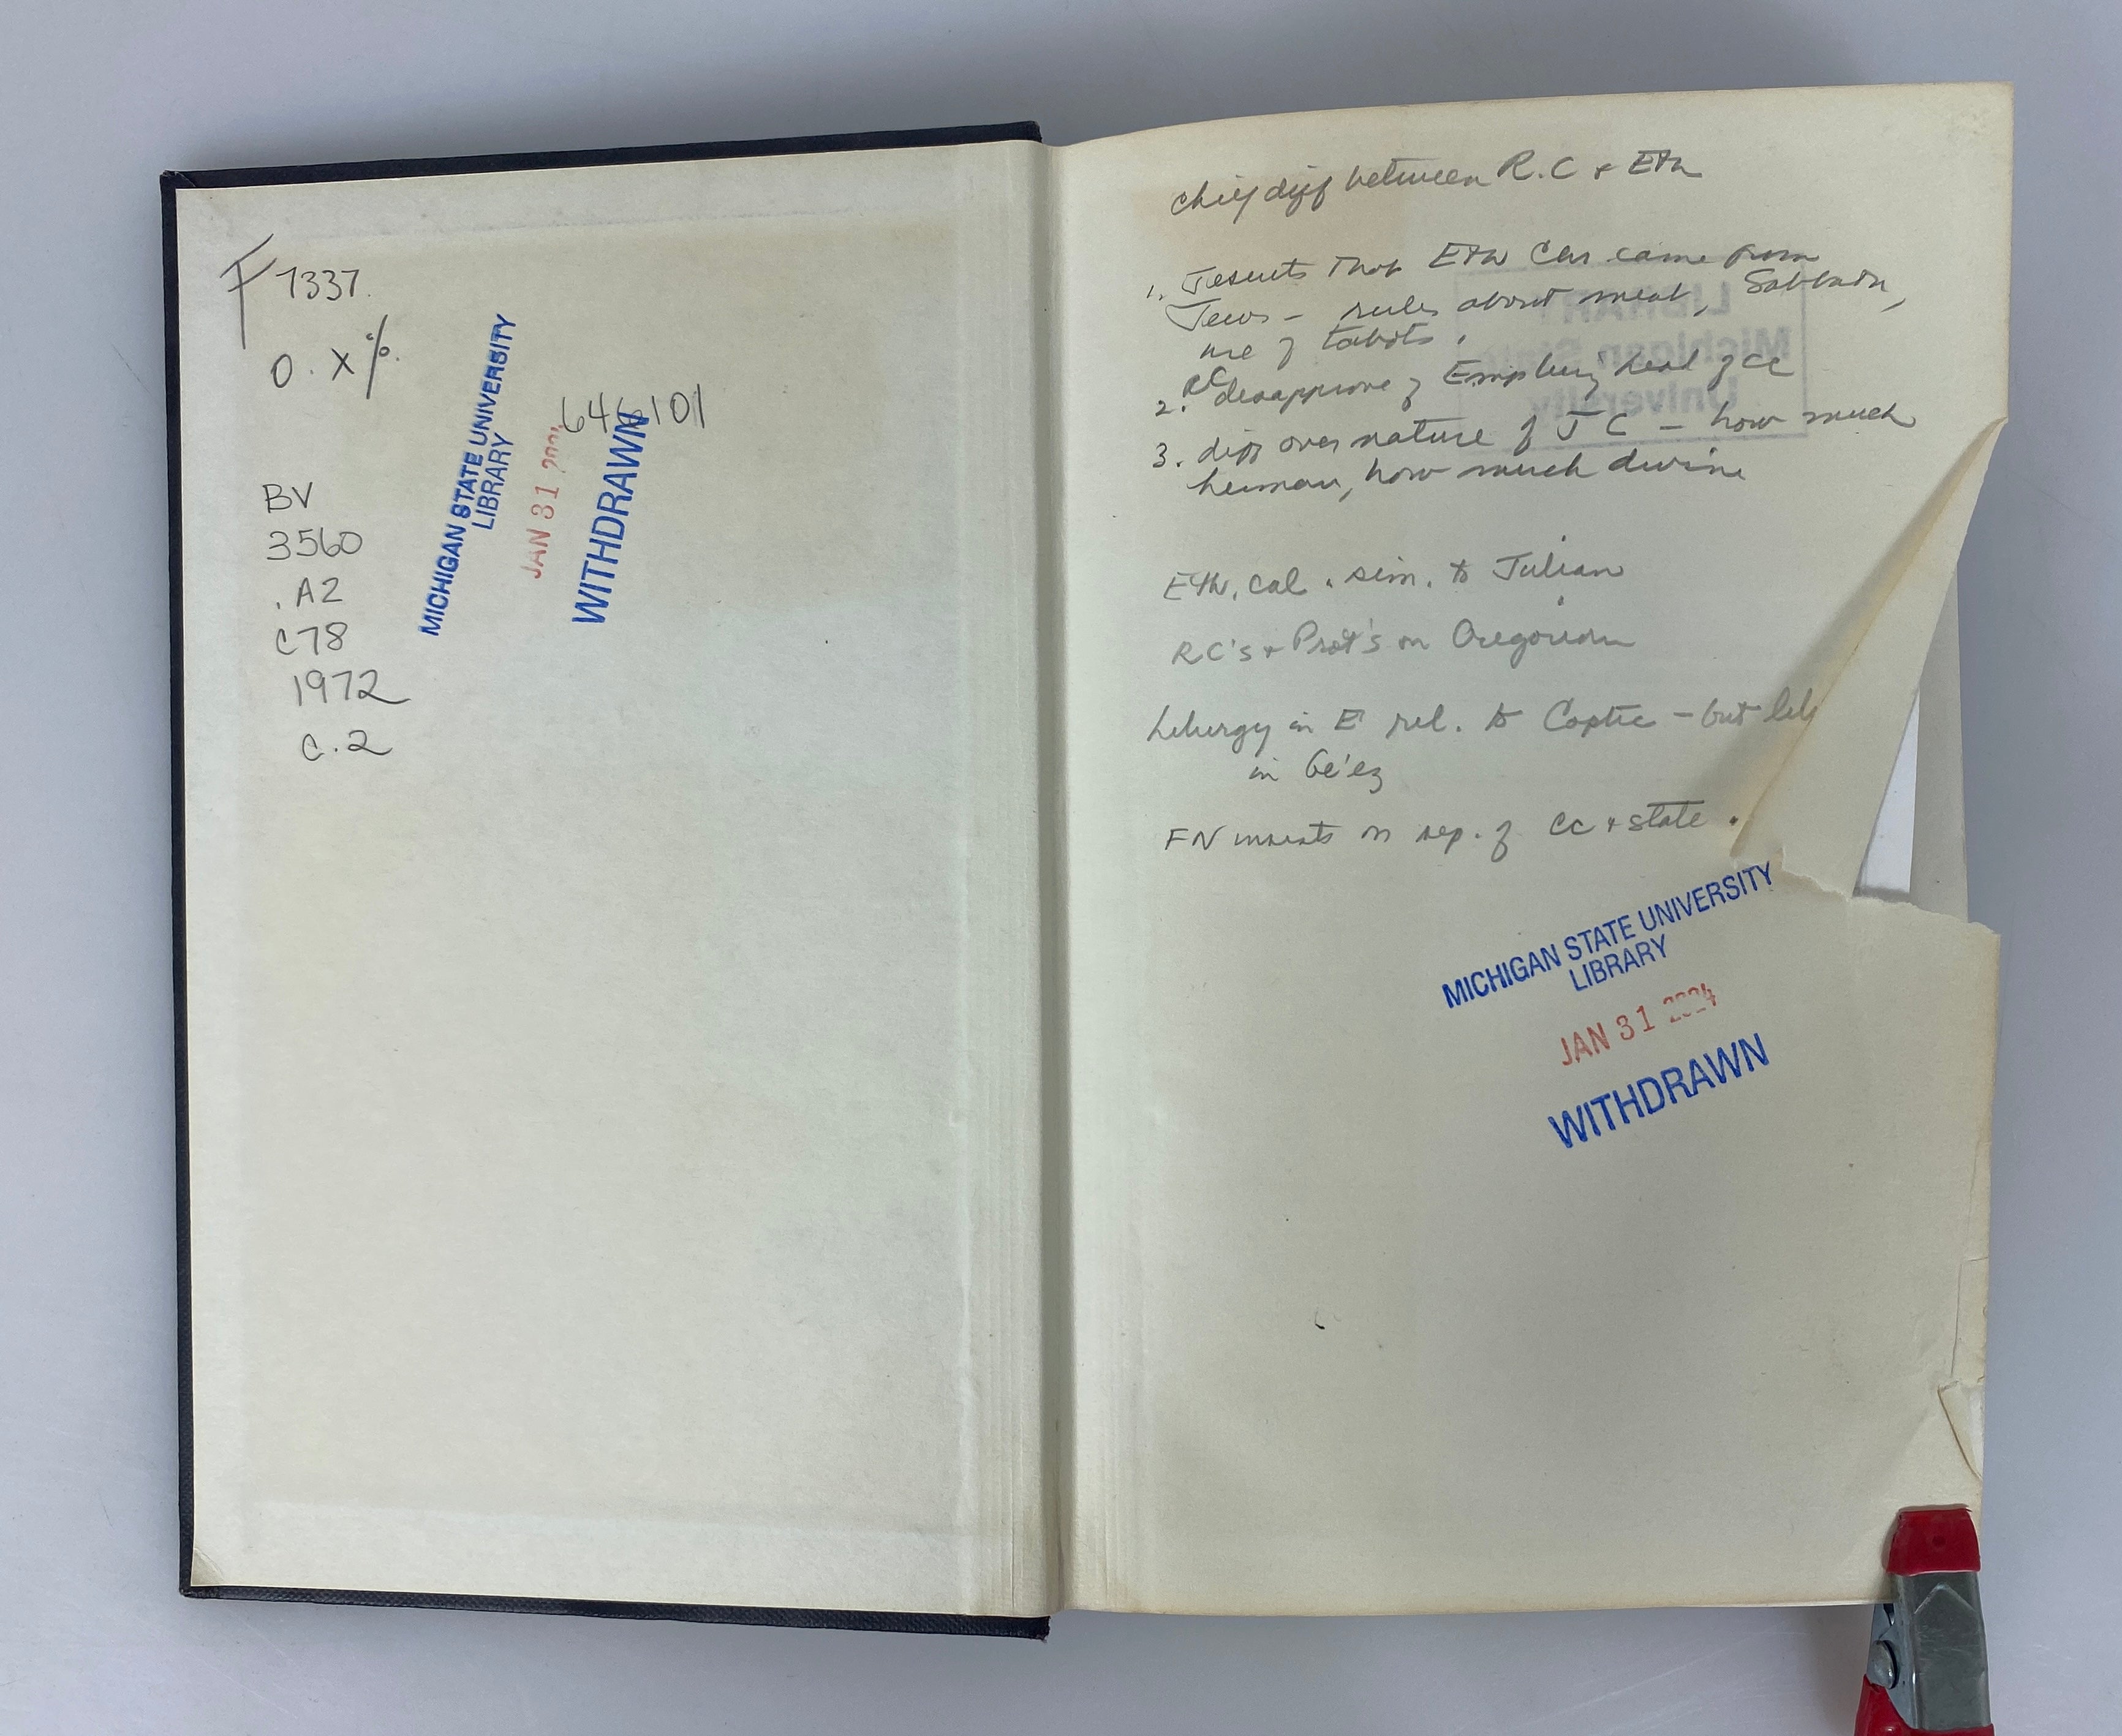 F 7337.
O. X %.
646101
BV
3560
. A2
C78
1972
C. 2
MICHIGAN STATE UNIVERSITY
LIBRARY
JAN 31
WITHDRAWN
chief diff between R.C & Eth
1. Jesuits that Eth Chr came from
Jews - rules about meat, Sabbath,
use of tabots.
2. RC disapprove of being head of cc
3. diff over nature of J C - how much
human, how much divine
Eth. cal. sim. to Julian
RC's & Prot's on Gregorian
Liturgy in E rel. to Coptic - but
in Ge'ez
FN insists on sep. of cc & state.
LIBRARY
Michigan State
University
MICHIGAN STATE UNIVERSITY
LIBRARY
JAN 31 2024
WITHDRAWN